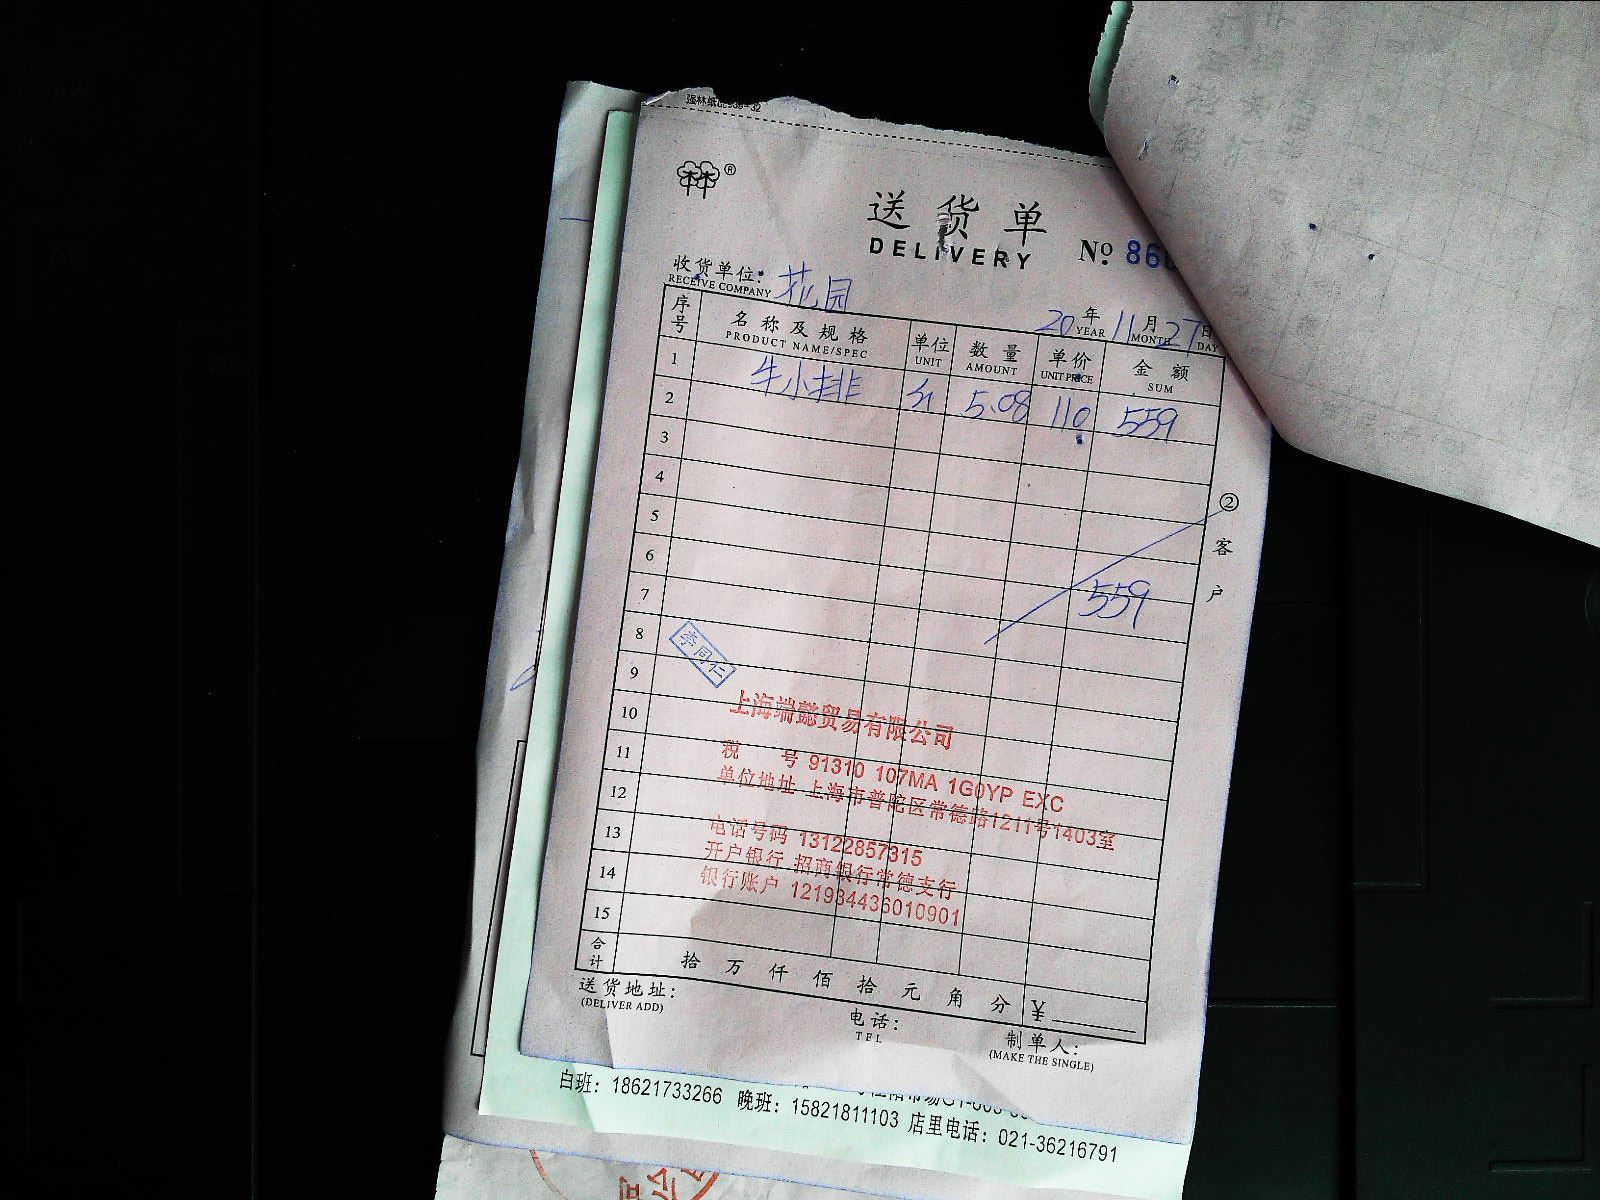 送货单
DELIVERY № 860
收货单位: 花园
RECEIVE COMPANY
20 年 11 月 27 日
YEAR MONTH DAY
序号 名称及规格 单位 数量 单价 金额
PRODUCT NAME/SPEC UNIT AMOUNT UNIT PRICE SUM
1 牛小排 5.08 110 559
2
3
4
5
6
7 559
8
9
10
11
12
13
14
15
② 客户
李同仁
上海端懿贸易有限公司
税 号 91310 107MA 1G0YP EXC
单位地址 上海市普陀区常德路1211号1403室
电话号码 13122857315
开户银行 招商银行常德支行
银行账户 121934436010901
合计 拾 万 仟 佰 拾 元 角 分 ¥
送货地址: 电话: 制单人:
(DELIVER ADD) TEL (MAKE THE SINGLE)
白班: 18621733266 晚班: 15821811103 店里电话: 021-36216791
公司